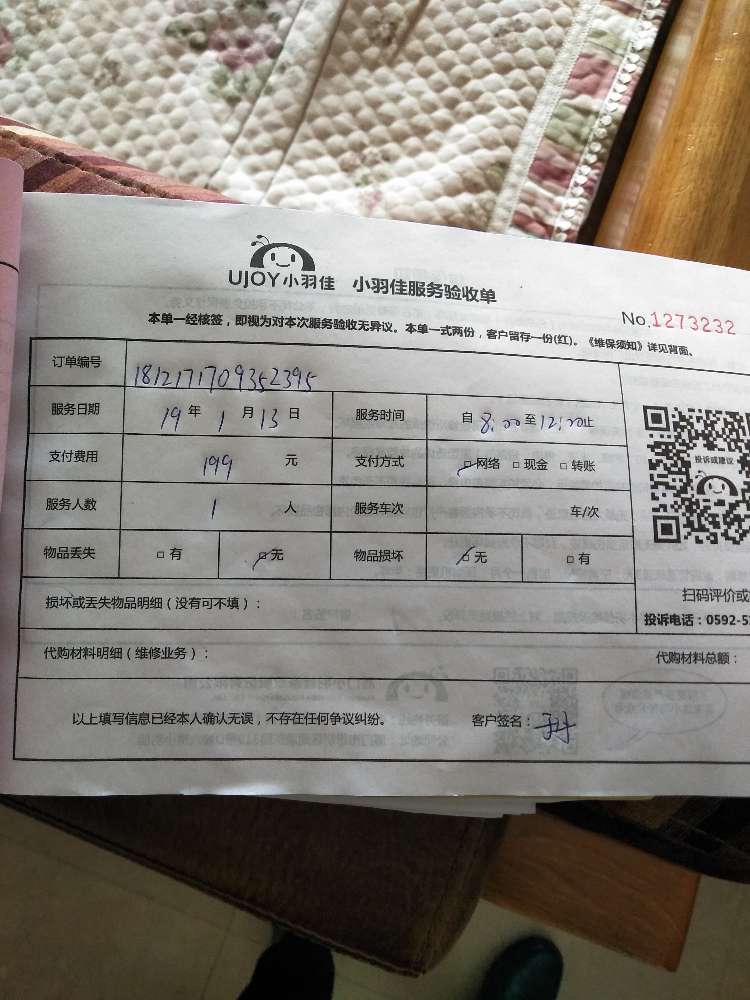 UJOY小羽佳 小羽佳服务验收单
No.1273232
本单一经核签，即视为对本次服务验收无异议。本单一式两份，客户留存一份(红)。《维保须知》详见背面、
订单编号 1812171709352395
服务日期 19年 1月 13日 服务时间 自 8:00至12:00止
支付费用 199 元 支付方式 ☑网络 □现金 □转账
服务人数 1 人 服务车次 车/次
物品丢失 □有 ☑无 物品损坏 ☑无 □有
投诉或建议
扫码评价或
损坏或丢失物品明细（没有可不填）：
投诉电话：0592-5
代购材料明细（维修业务）： 代购材料总额：
以上填写信息已经本人确认无误，不存在任何争议纠纷。 客户签名：